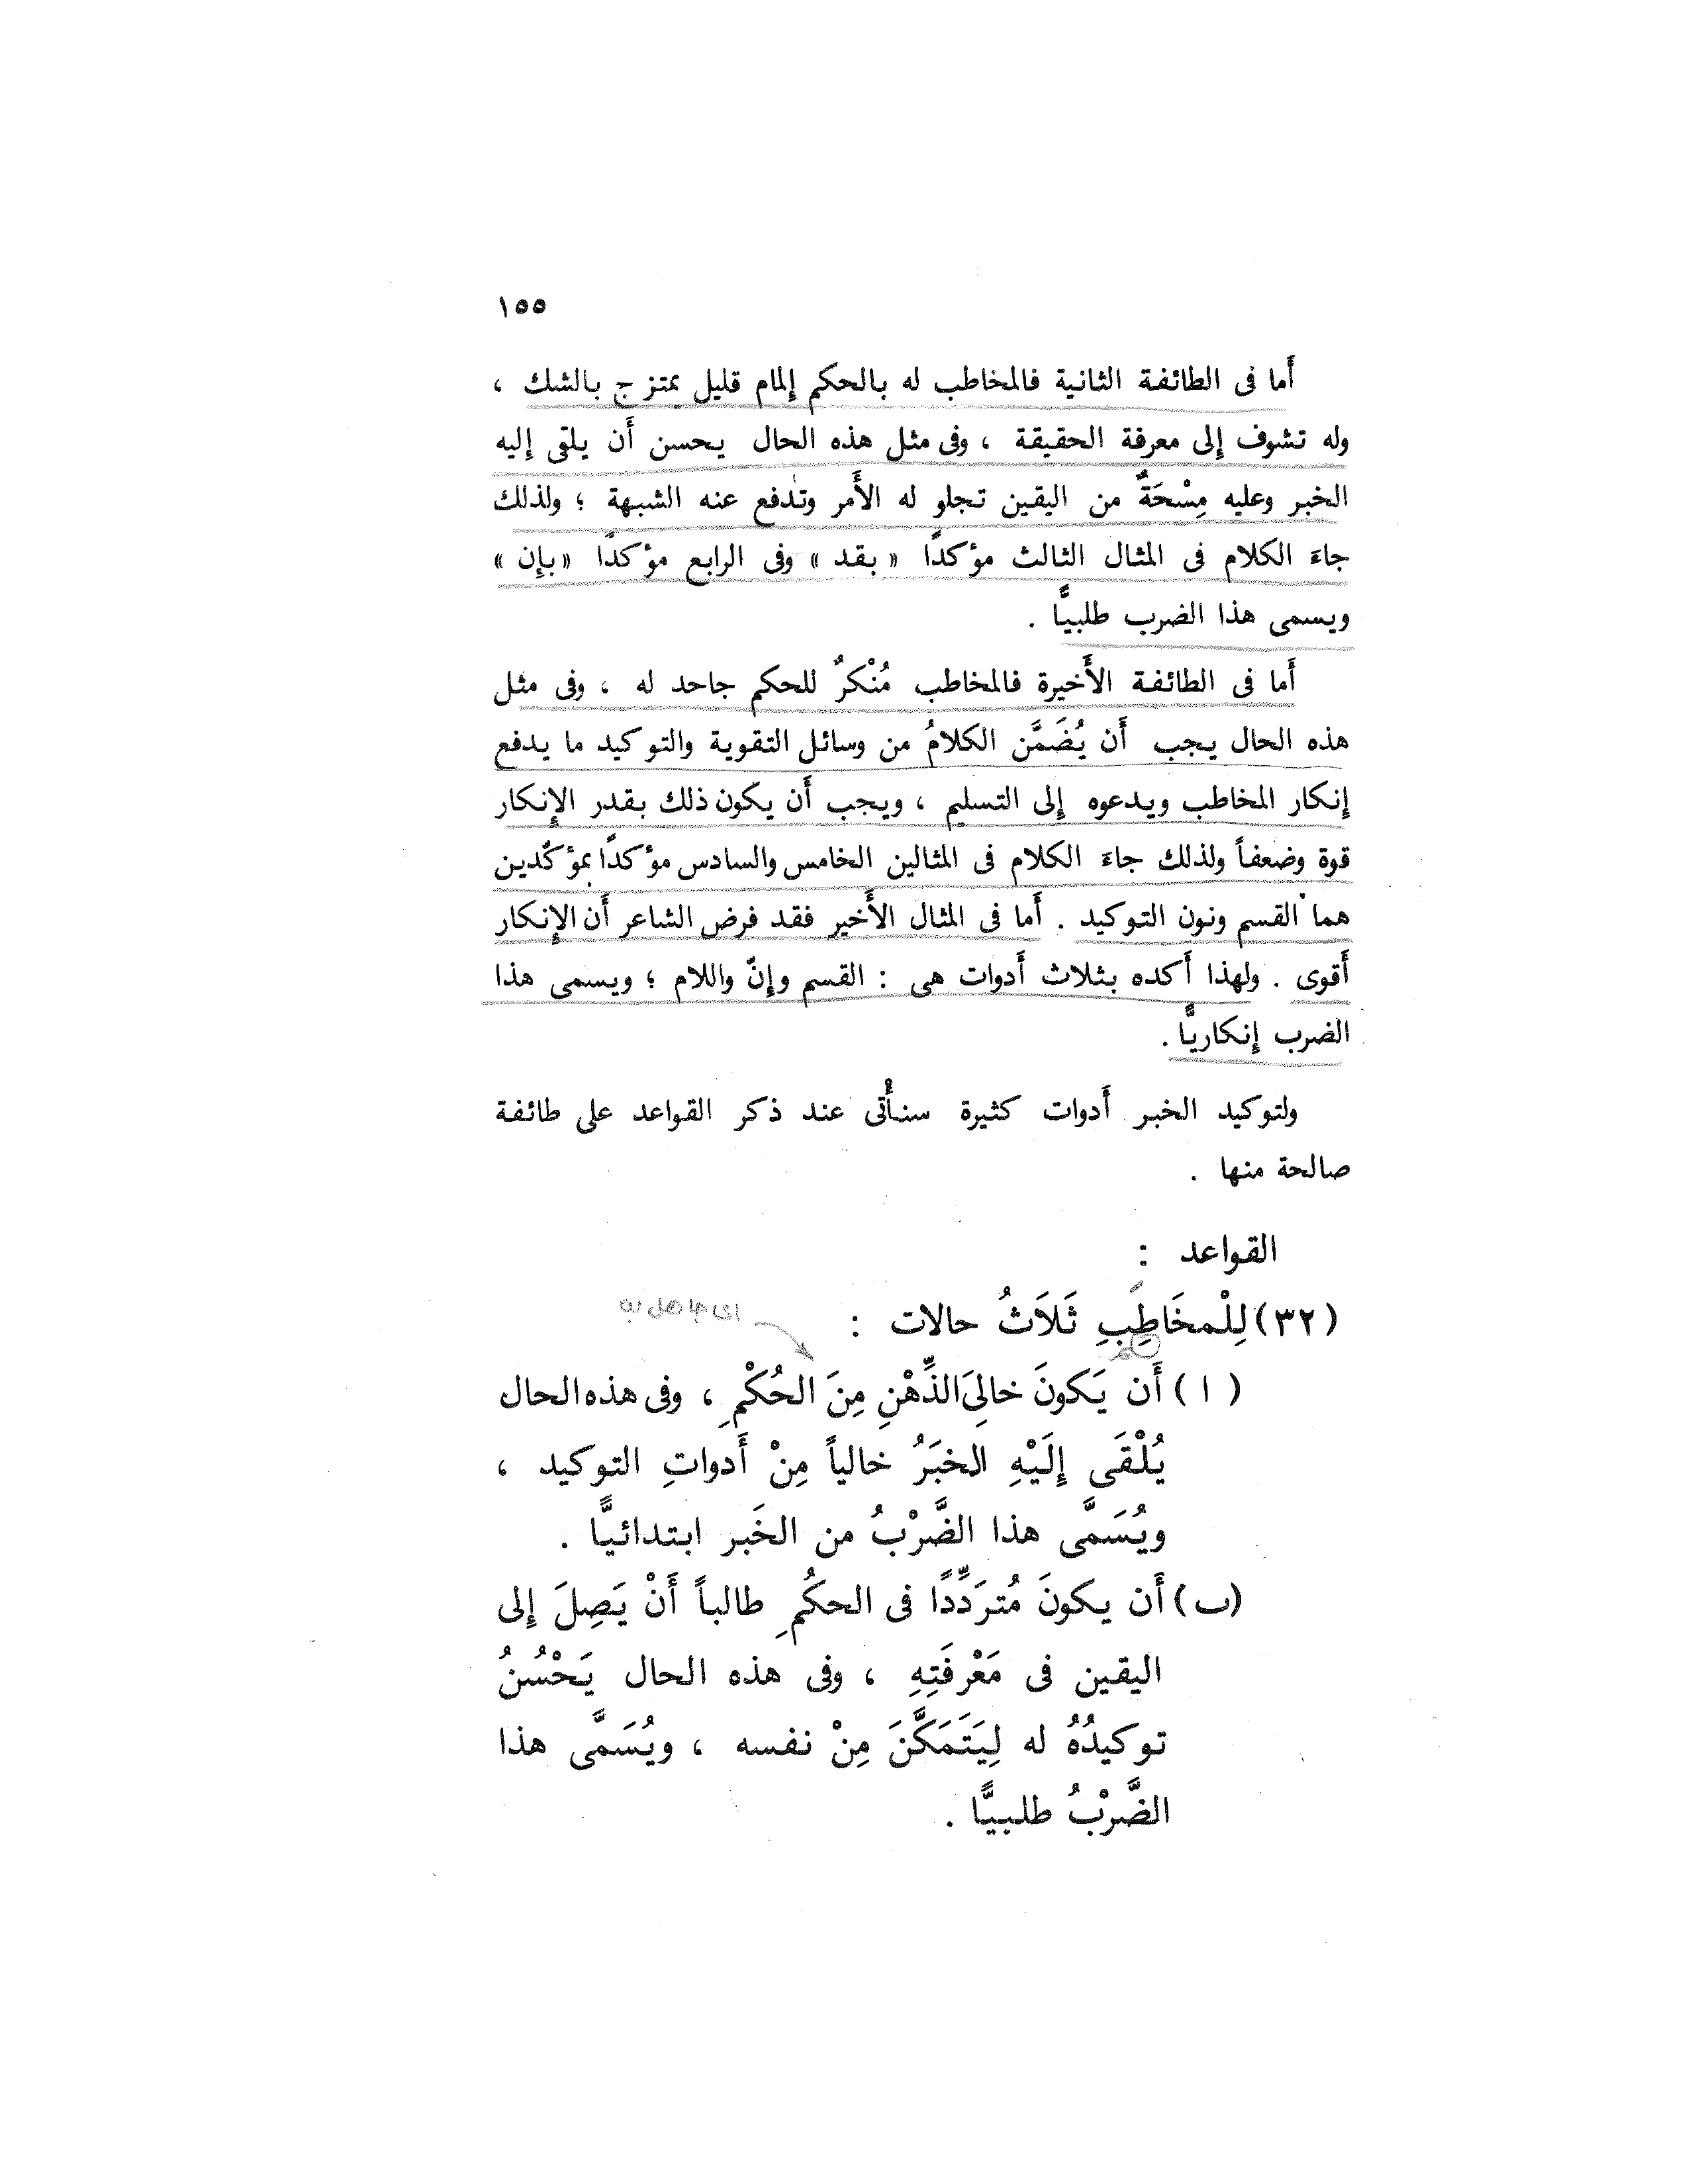 ١٥٥
أَما فى الطائفة الثانية فالمخاطب له بالحكم إلمام قليل يمتزج بالشك ،
وله تشوف إلى معرفة الحقيقة ، وفى مثل هذه الحال يحسن أَن يلقى إليه
الخبر وعليه مِسْحَةٌ من اليقين تجلو له الأَمر وتدفع عنه الشبهة ؛ ولذلك
جاءَ الكلام فى المثال الثالث مؤكدًا « بقد » وفى الرابع مؤكدًا «بإِن »
ويسمى هذا الضرب طلبيًّا .
أَما فى الطائفة الأَخيرة فالمخاطب مُنْكرٌ للحكم جاحد له ، وفى مثل
هذه الحال يجب أَن يُضَمَّن الكلامُ من وسائل التقوية والتوكيد ما يدفع
إِنكار المخاطب ويدعوه إِلى التسليم ، ويجب أَن يكون ذلك بقدر الإِنكار
قوة وضعفاً ولذلك جاءَ الكلام فى المثالين الخامس والسادس مؤكدًا بمؤكدين
هما القسم ونون التوكيد . أَما فى المثال الأَخير فقد فرض الشاعر أَن الإِنكار
أَقوى . ولهذا أَكده بثلاث أَدوات هى : القسم وإِنّ واللام ؛ ويسمى هذا
الضرب إِنكاريًّا .
ولتوكيد الخبر أَدوات كثيرة سنأْتى عند ذكر القواعد على طائفة
صالحة منها .
القواعد :
(٣٢) لِلْمخَاطِبِ ثَلاَثُ حالات :
اى جاهل به
( ا ) أَن يَكونَ خالِىَ الذِّهْنِ مِنَ الحُكْمِ ، وفى هذه الحال
يُلْقَى إِلَيْهِ الخبَرُ خالياً مِنْ أَدواتِ التوكيد ،
ويُسَمَّى هذا الضَّرْبُ من الخَبر ابتدائيًّا .
(ب) أَن يكونَ مُترَدِّدًا فى الحكُمِ طالباً أَنْ يَصِلَ إِلى
اليقين فى مَعْرفَتِهِ ، وفى هذه الحال يَحْسُنُ
توكيدُهُ له لِيَتَمَكَّنَ مِنْ نفسه ، ويُسَمَّى هذا
الضَّرْبُ طلبيًّا .